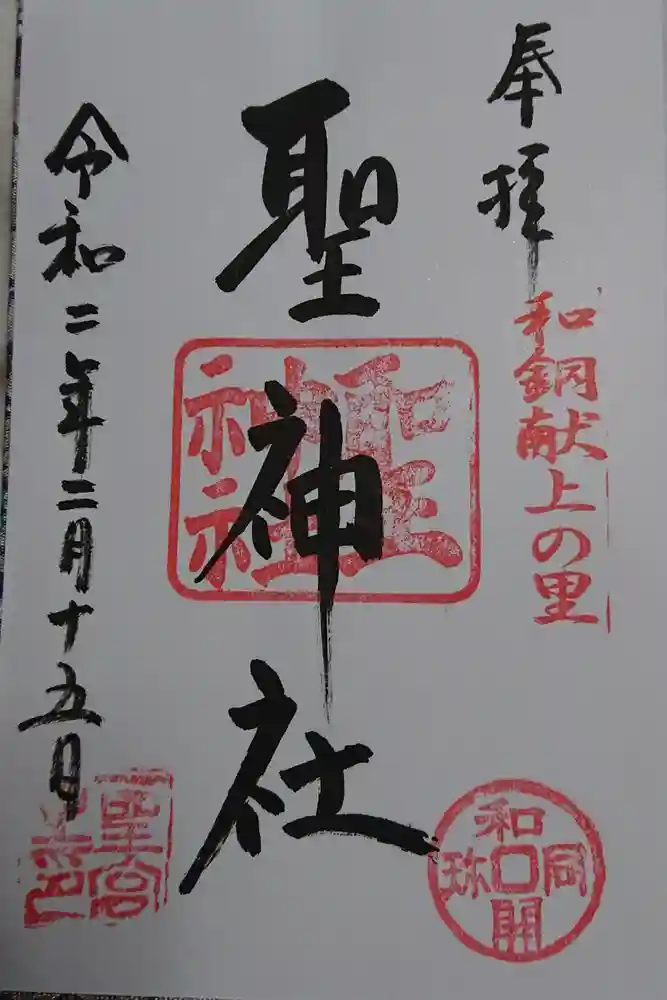 奉拝
和銅献上の里
聖神社
聖神社
和同開珎
令和二年二月十五日
聖宮